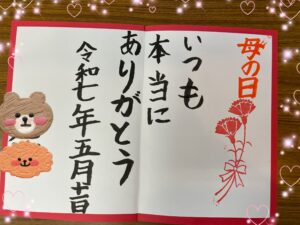 母の日
いつも
本当に
ありがとう
令和七年五月十一日